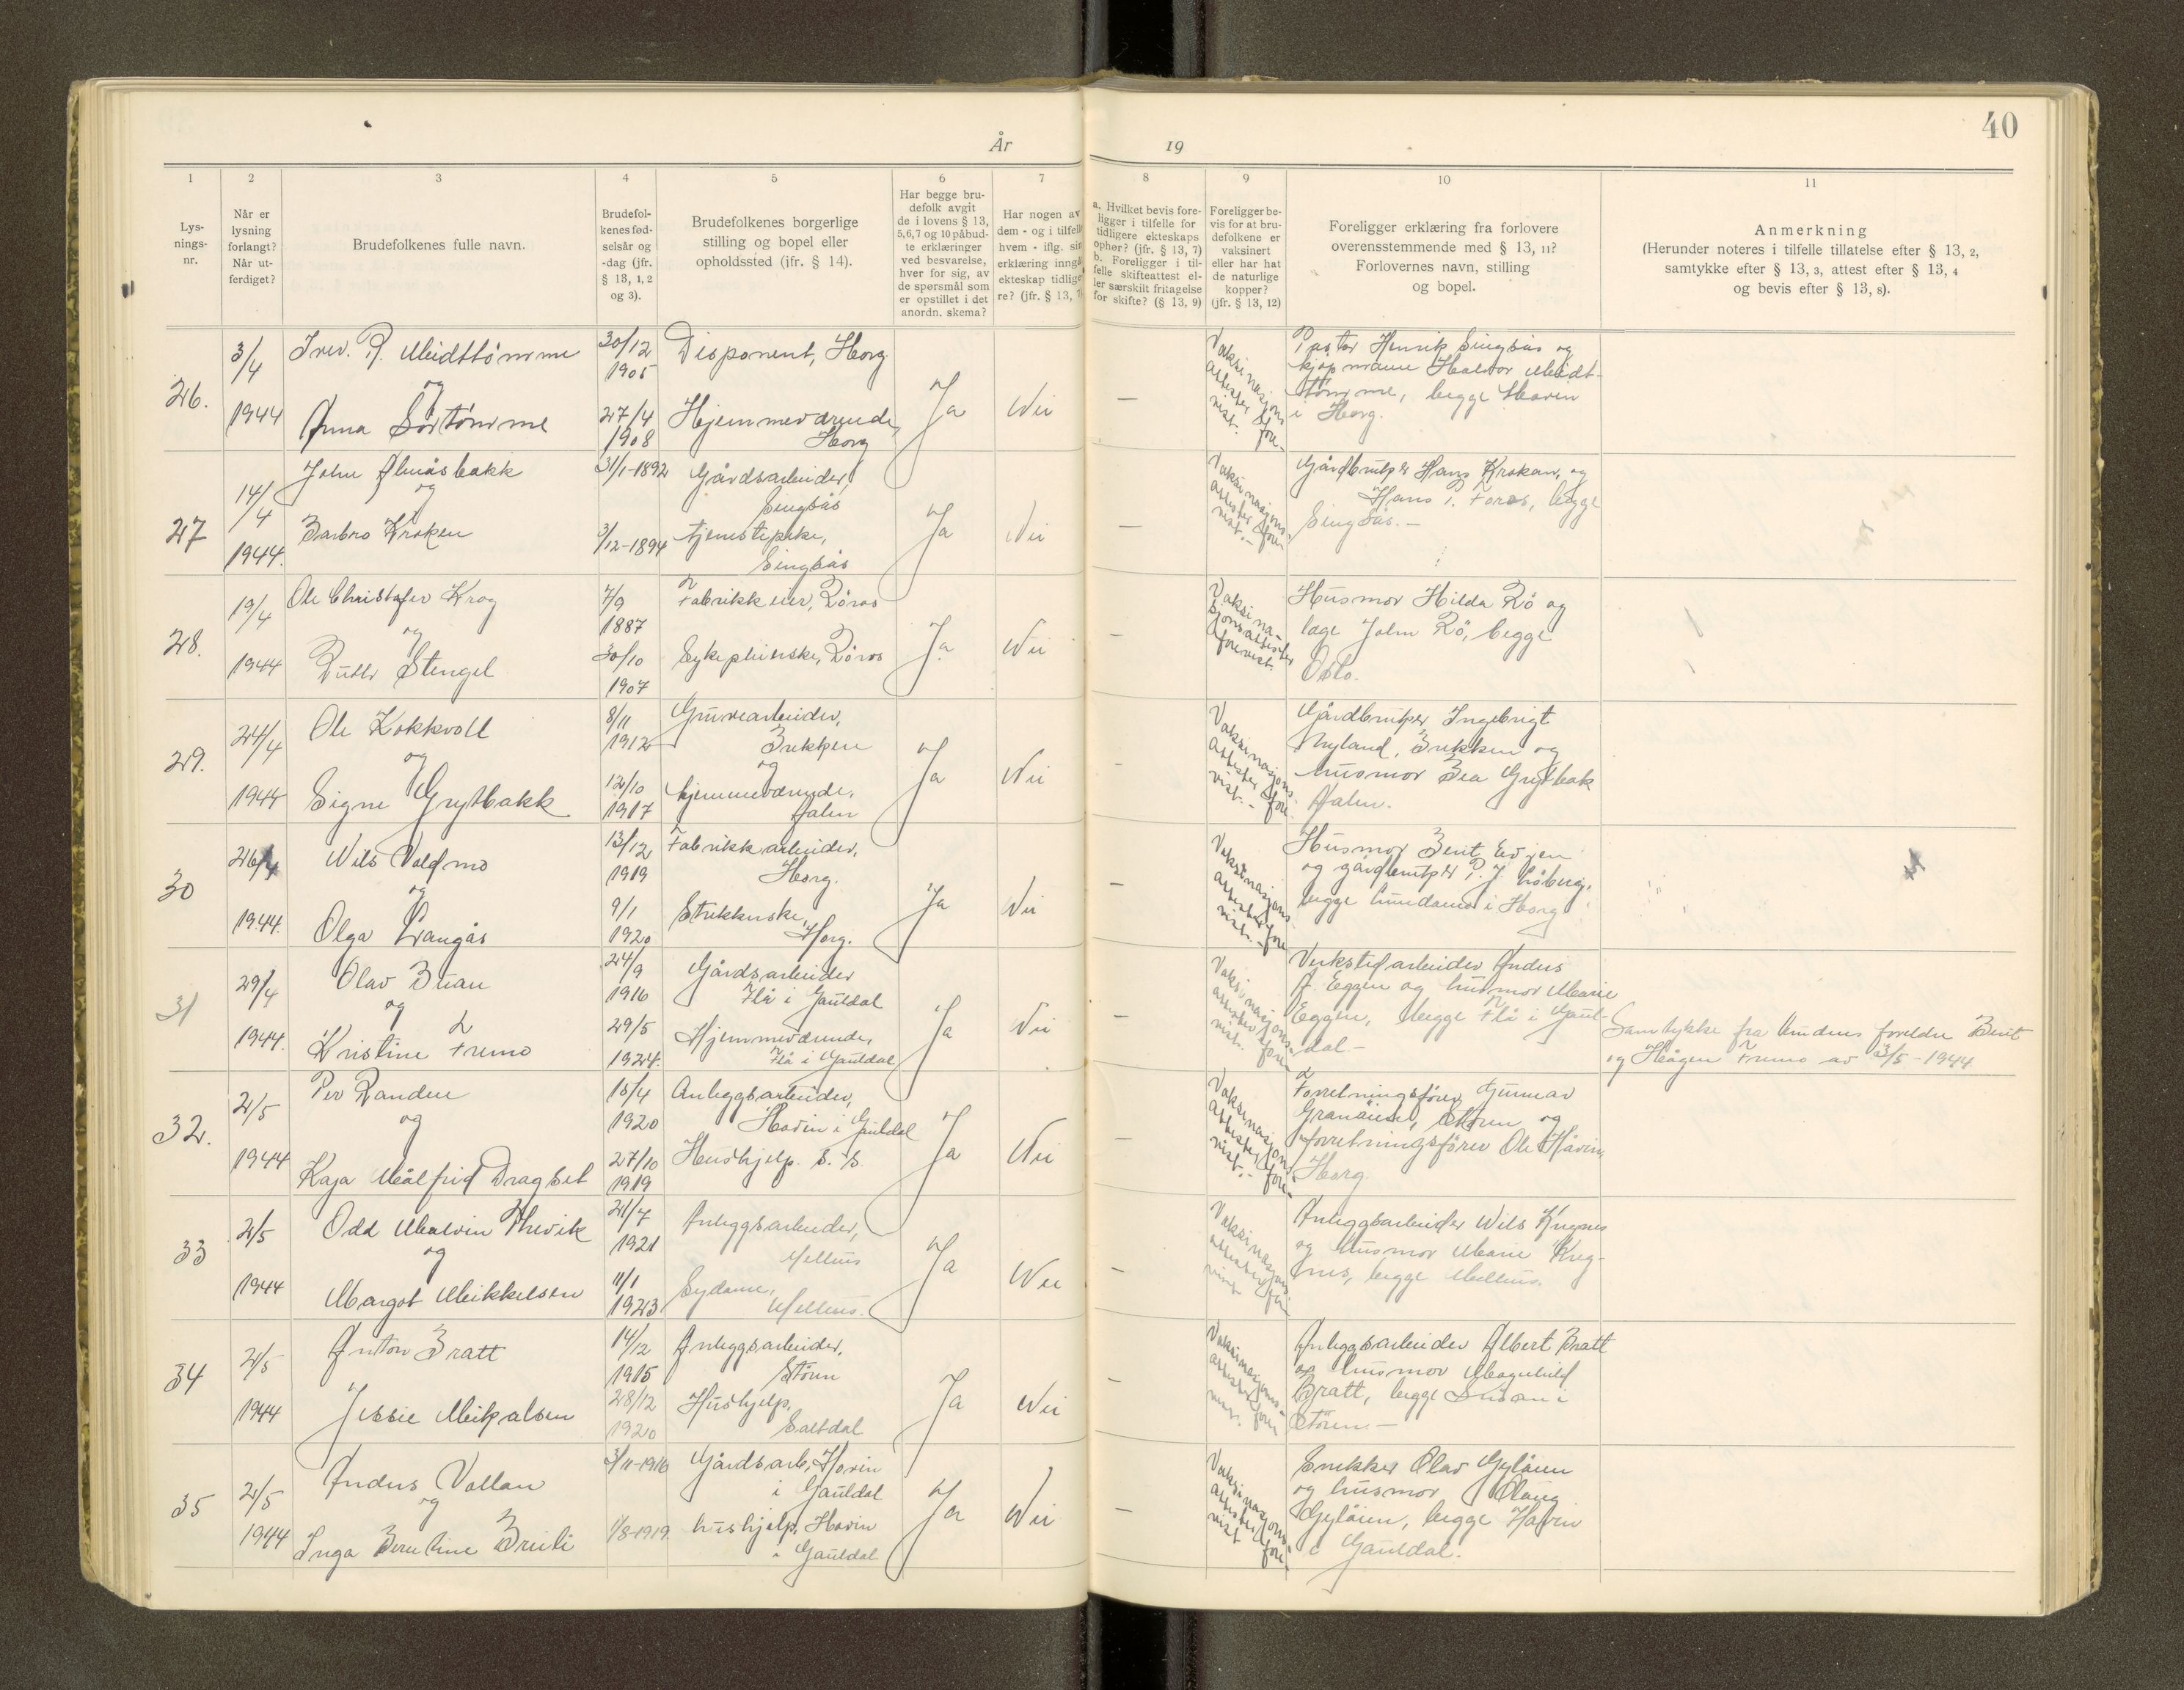 40
År 19
1 2 3 4 5 6 7 8 9 10 11
Lys-
nings-
nr.
Når er
lysning
forlangt?
Når ut-
ferdiget?
Brudefolkenes fulle navn.
Brudefol-
kenes fød-
selsår og
-dag (jfr.
§ 13, 1, 2
og 3).
Brudefolkenes borgerlige
stilling og bopel eller
opholdssted (jfr. § 14).
Har begge bru-
defolk avgit
de i lovens § 13,
5,6,7 og 10 påbud-
te erklæringer
ved besvarelse,
hver for sig, av
de spørsmål som
er opstillet i det
anordn. skema?
Har nogen av
dem - og i tilfelle
hvem - iflg. sin
erklæring inngå
ekteskap tidlige
re? (jfr. § 13, 7)
a. Hvilket bevis fore-
ligger i tilfelle for
tidligere ekteskaps
ophør? (jfr. § 13, 7)
b. Foreligger i til-
felle skifteattest el-
ler særskilt fritagelse
for skifte? (§ 13, 9)
Foreligger be-
vis for at bru-
defolkene er
vaksinert
eller har hat
de naturlige
kopper?
(jfr. § 13, 12)
Foreligger erklæring fra forlovere
overensstemmende med § 13, 11?
Forlovernes navn, stilling
og bopel.
Anmerkning
(Herunder noteres i tilfelle tillatelse efter § 13, 2,
samtykke efter § 13, 3, attest efter § 13, 4
og bevis efter § 13, 8).
26.
3/4
1944
P. Midttømme
og
Anna Sørtømme
30/12
1905
27/4
1908
Disponent, Horg
Hjemmeværende,
Horg
Ja
Nei
—
Vaksinasjons
attester fore-
vist.
Pastor Henrik Singsås og
kjøpmann Halvor Midt-
tømme, begge Hovin
i Horg.
27
14/4
1944.
John Almåsbakk
og
Barbro Kroken
31/1-1892
3/12-1894
Gårdsarbeider,
Singsås
tjenestepike,
Singsås
Ja
Nei
—
Vaksinasjons
attester fore-
vist.-
Gårdbruker Hans Krokan, og
Hans P. Foros, begge
Singsås.-
28.
19/4
1944
Ole Christofer Krog
og
Ruth Stengel
7/9
1887
30/10
1907
Fabrikkeier, Røros
Sykepleierske, Røros
Ja
Nei
—
Vaksina-
sjonsattester
forevist.
Husmor Hilda Rø og
læge John Rø, begge
Oslo.
29.
24/4
1944
Ole Kokkvoll
og
Signe Grytbakk
8/11
1912
12/10
1917
Gruvearbeider,
Brekken
og
hjemmeværende,
Aalen
Ja
Nei
—
Vaksinasjons-
attester fore-
vist.-
Gårdbruker Ingebrigt
Ryland, Brekken og
husmor Bea Grytbak
Aalen.
30
26/4
1944.
Nils Voldmo
og
Olga Langås
13/12
1919
9/1
1920
Fabrikkarbeider,
Horg.
Strikkerske,
Horg.
Ja
Nei
—
Vaksinasjons
attester fore
vist.-
Husmor Berit Evjen
og gårdbruker P. J. Løberg,
begge Lundamo i Horg
31
29/4
1944.
Olav Buan
og
Kristine Fremo
24/9
1916
29/5
1924.
Gårdsarbeider
Flå i Gauldal
Hjemmeværende,
Flå i Gauldal
Ja
Nei
—
Vaksinasjons-
attester fore
vist.
Verkstedarbeider Anders
A. Eggen og husmor Marie
Eggen, begge Flå i Gaul-
dal.-
Samtykke fra brudens foreldre Berit
og Hågen Fremo av 3/5 - 1944
32.
2/5
1944
Per Randen
og
Kaja Målfrid Dragset
15/4
1920
27/10
1919
Anleggsarbeider,
Hovin i Gauldal
Hushjelp. s. s.
Ja
Nei
—
Vaksinasjons
attester fore-
vist.-
Forretningsfører Gunnar
Granåien, Støren og
forretningsfører Ole Håvin,
Horg
33
2/5
1944
Odd Malvin
og
Margot Mikkelsen
21/7
1921
11/1
1923
Anleggsarbeider,
Melhus
Sydame,
Melhus.
Ja
Nei
—
Vaksinasjons
attester fore
vist
Anleggsarbeider Nils Kregnes
og husmor Marie Kreg-
nes, begge Melhus.
34
2/5
1944
Anton Bratt
Jessie Mikalsen
14/12
1915
28/12
1920
Anleggsarbeider,
Støren
Hushjelp,
Saltdal
Ja
Nei
—
Vaksinasjons-
attester fore
vist.
Anleggsarbeider Albert Bratt
og husmor Magnhild
Bratt, begge i
Støren.—
35
2/5
1944
Anders Vollan
og
Inga Bentine Breili
3/11-1916
1/8-1919
Gårdsarb., Hovin
i Gauldal
hushjelp, Hovin
i Gauldal
Ja
Nei
—
Vaksinasjons-
attester fore-
vist
Snekker Olav Gylåien
og husmor Olaug
Gylåien, begge Hovin
i Gauldal.